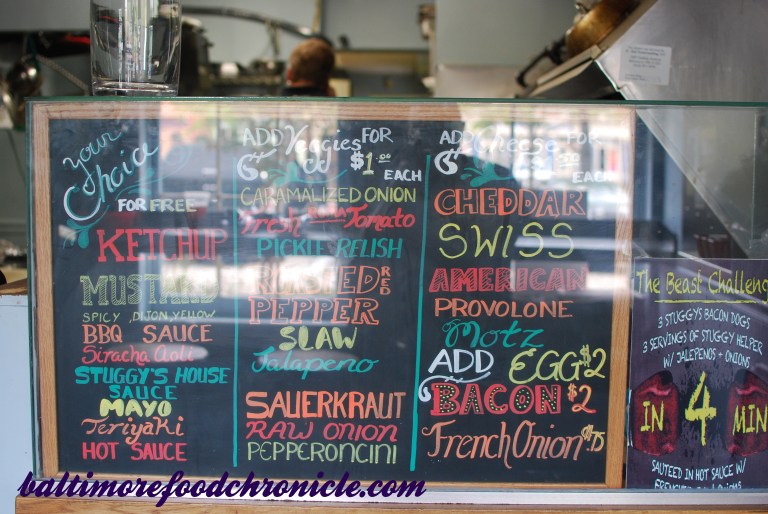 your
Choice
FOR FREE
KETCHUP
MUSTARD
SPICY, DIJON, YELLOW
BBQ SAUCE
Siracha Aoli
STUGGY'S HOUSE
SAUCE
MAYO
Teriyaki
HOT SAUCE
ADD Veggies FOR
$1.00 EACH
CARAMALIZED ONION
Fresh ROMA Tomato
PICKLE RELISH
ROASTED RED
PEPPER
SLAW
Jalapeno
SAUERKRAUT
RAW ONION
PEPPERONCINI
ADD Cheese FOR
EACH
CHEDDAR
SWISS
AMERICAN
PROVOLONE
Motz
ADD EGG $2
BACON $2
French Onion
The Beast Challeng
3 STUGGYS BACON DOGS
3 SERVINGS OF STUGGY HELPER
W/ JALEPENOS + ONIONS
IN 4 MIN
SAUTEED IN HOT SAUCE W/
baltimorefoodchronicle.com